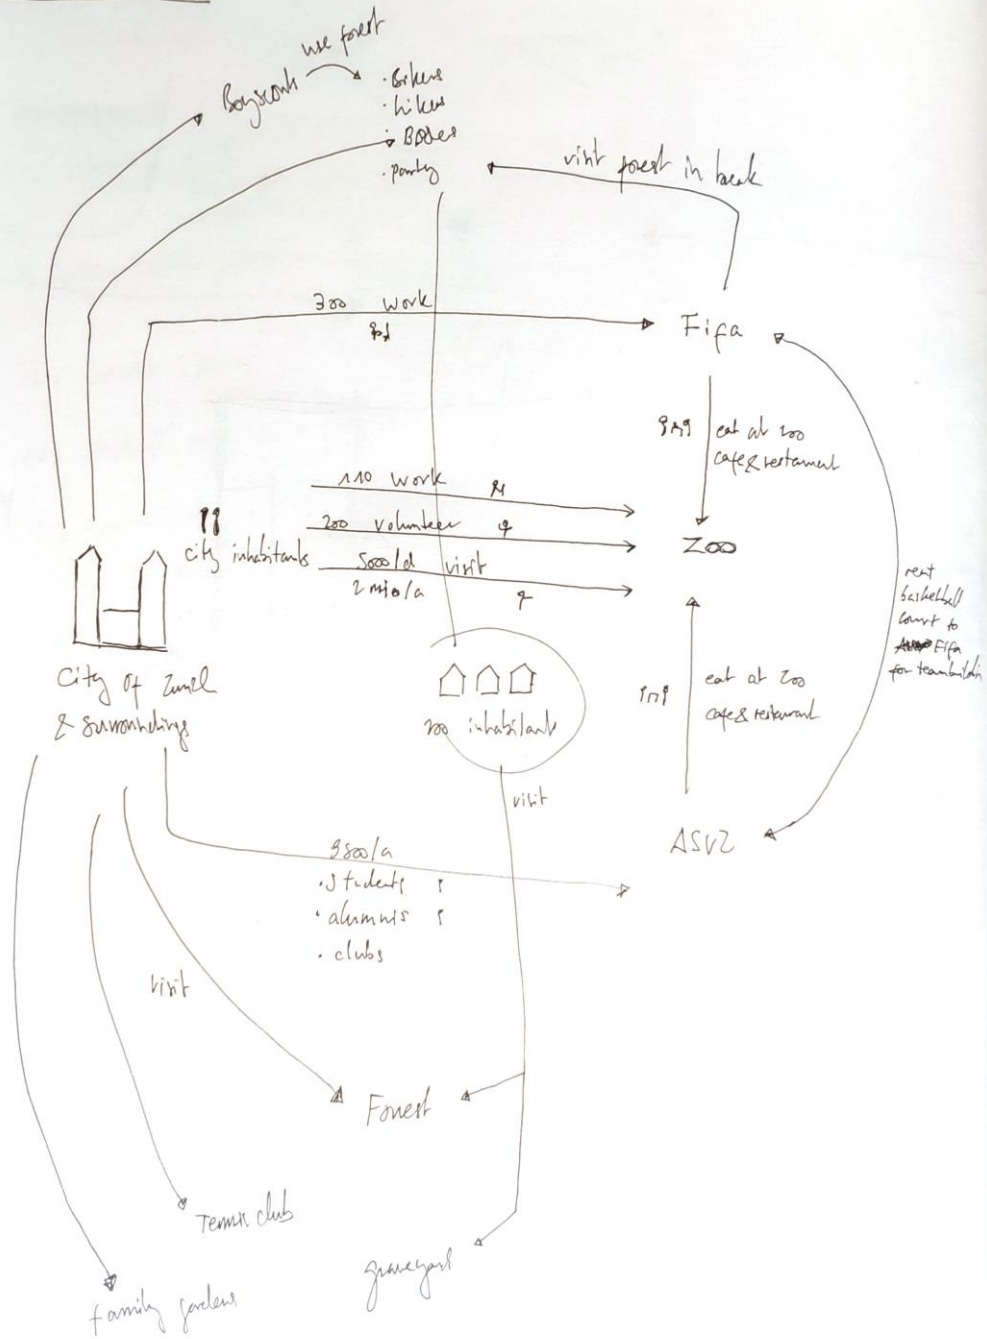 use forest
Boyscouts
· Bikers
· hikers
· Boder
· party
visit forest in break
300 work
Fifa
eat at zoo
cafe & restaurant
110 work
200 volunteer
5000/d visit
2 mio/a
city inhabitants
Zoo
rent
basketball
court to
Fifa
for teambuildin
City of
& surroundings
200 inhabitants
eat at Zoo
cafe & restaurant
visit
ASVZ
9800/a
· Students
· alumnis
· clubs
visit
Forest
Tennis club
graveyard
family gardens